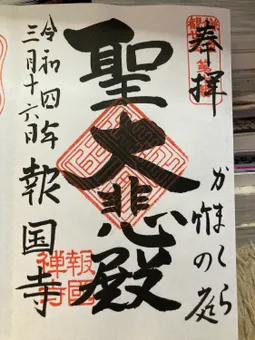 奉拝
かまくら
竹の庭
聖大悲殿
令和四年
三月十六日
報国寺
報國
禅寺